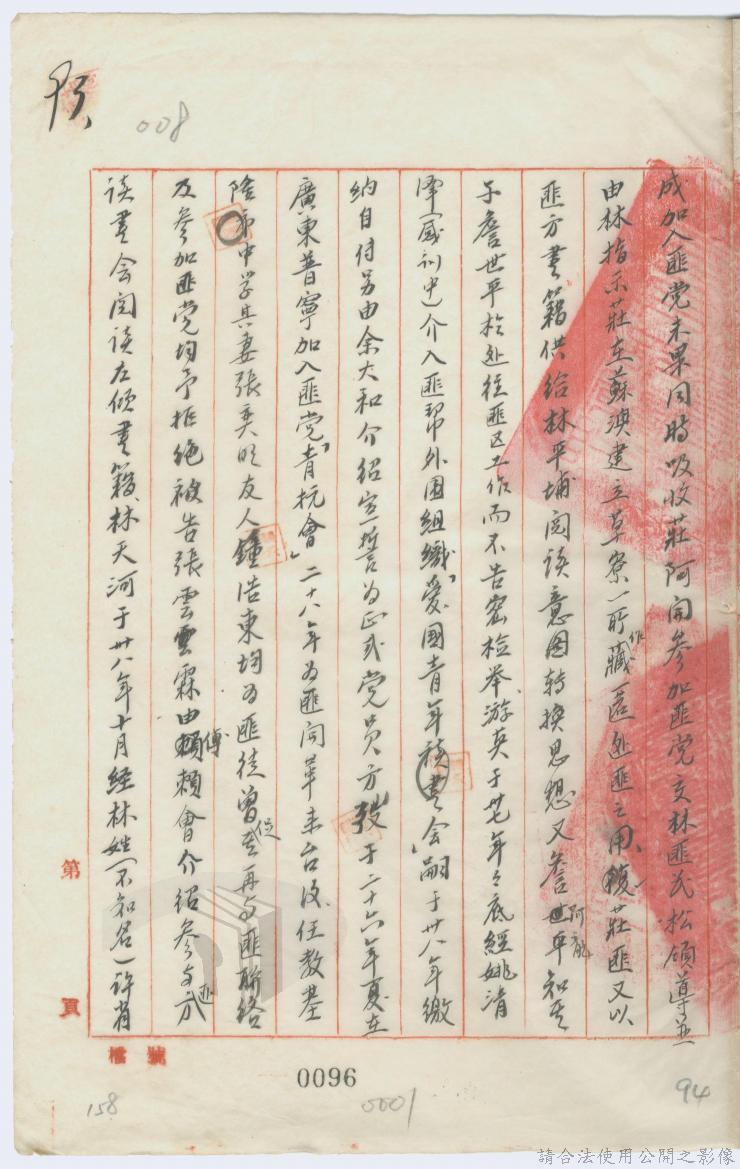 008
成加入匪党未果同時吸收莊阿開參加匪党交林匪茂松領導並
由林指示莊在蘇澳建立草寮一所作藏匿処匪之用復莊匪又以
匪方書籍供給林平埔閱读意图轉換思想又詹世平阿龍知其
子詹世平於赴往匪区工作而不告密检举游英于卅七年年底經姚清
澤(感训中)介入匪帮外围組織「爱國青年读書会」嗣于卅八年繳
納自傳另由余大和介绍宣誓为正式党员方弢于二十六年夏在
廣東普寧加入匪党「青抗會」二十八年为匪同華来台後任教基
隆市中学其妻張奕明友人鍾浩東均为匪徒曾促其再与匪聯络
及參加匪党均予拒絶被告張雲霖由傅賴會介绍參与匪方
读書会阅读左倾書籍林天河于卅八年十月經林姓(不知名)許省
第 頁
檔 號
0096
0001
158
94
請合法使用公開之影像